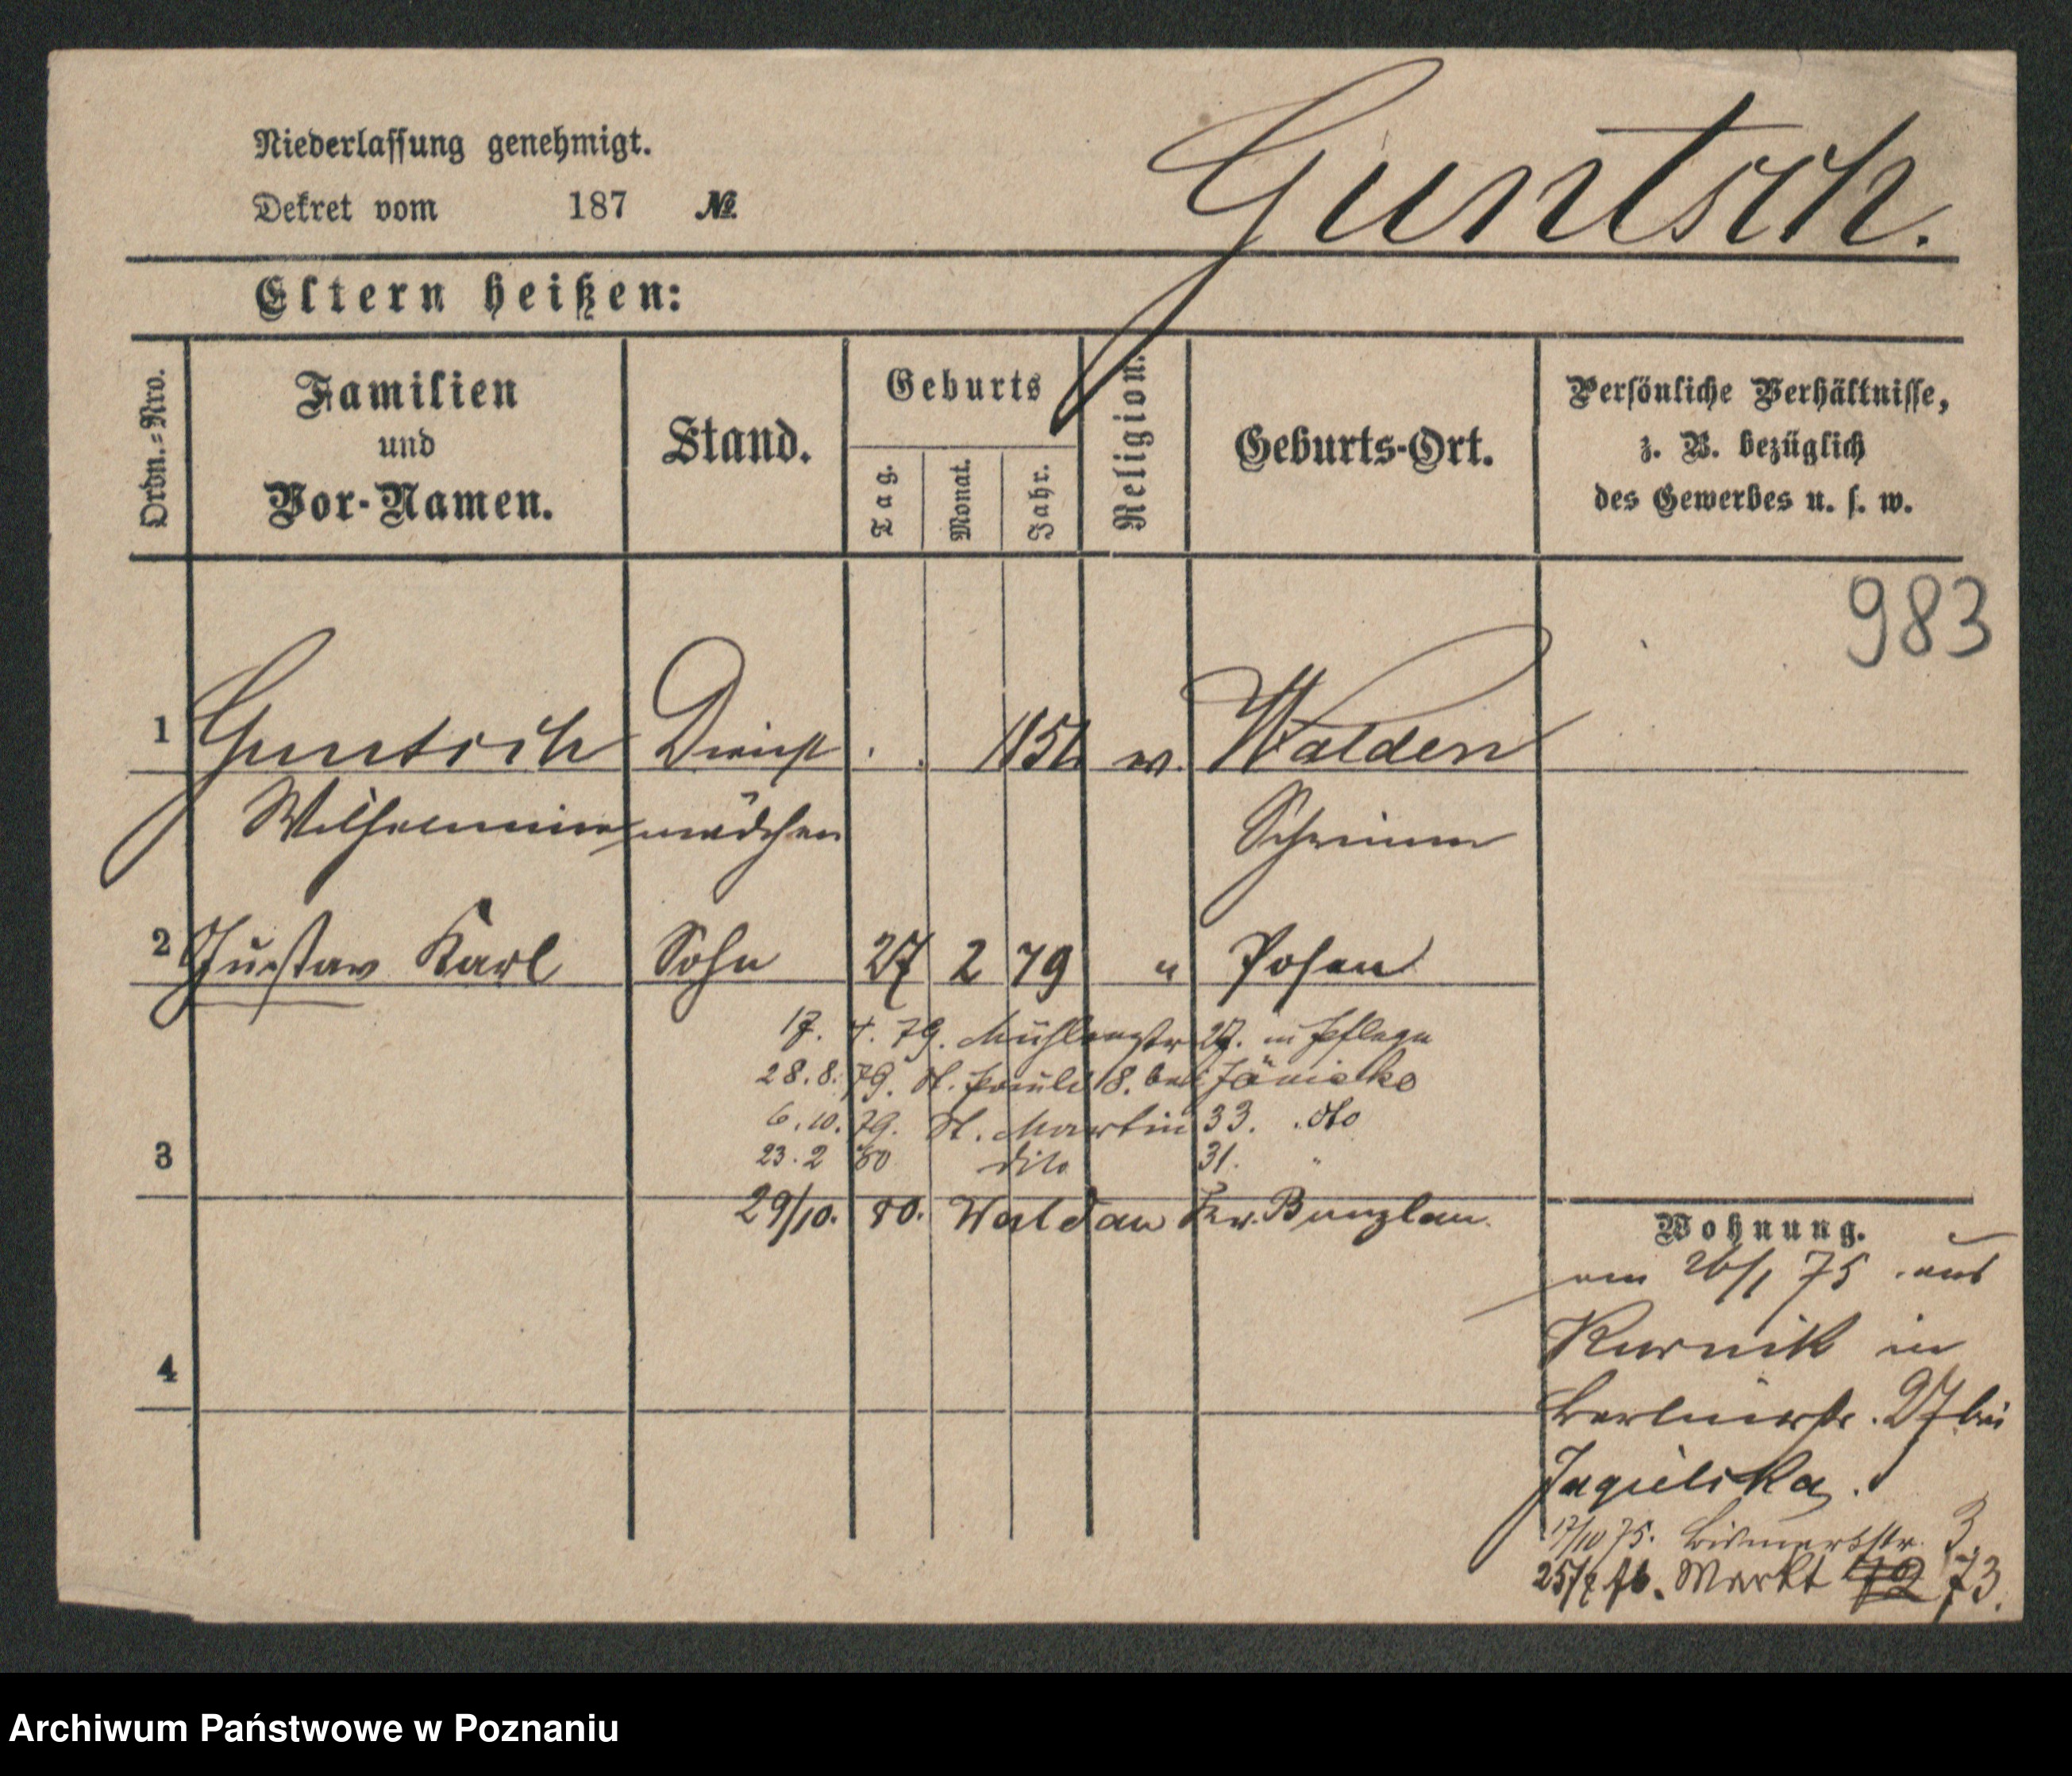 Guntsch.
Niederlassung genehmigt.
Dekret vom 187 №
Eltern heißen:
Ordn.=Nro.
Familien
und
Vor-Namen.
Stand.
Geburts
Tag.
Monat.
Jahr.
Religion.
Geburts-Ort.
Persönliche Verhältnisse,
z. B. bezüglich
des Gewerbes u. s. w.
983
1 Guntsch Dienst Walden
Wilhelmine mädchen Schrimm
2 Gustav Karl Sohn 27 2 79 " Posen
17. 4. 79. Mühlenstr 27. in Pflege
28. 8. 79. St. Pauli 8. bei Jänicke
6. 10. 79. St. Martin 33. dto
3 23. 2 80 dito 31. "
29/10. 80. Waldau Kr. Bunzlau.
4
Wohnung.
am 26/1 75 aus
Kurnik in
Berlinerstr. 27 bei
Jagielska.
17/10 75. Bismarkstr. 3.
Markt 72 73.
Archiwum Państwowe w Poznaniu